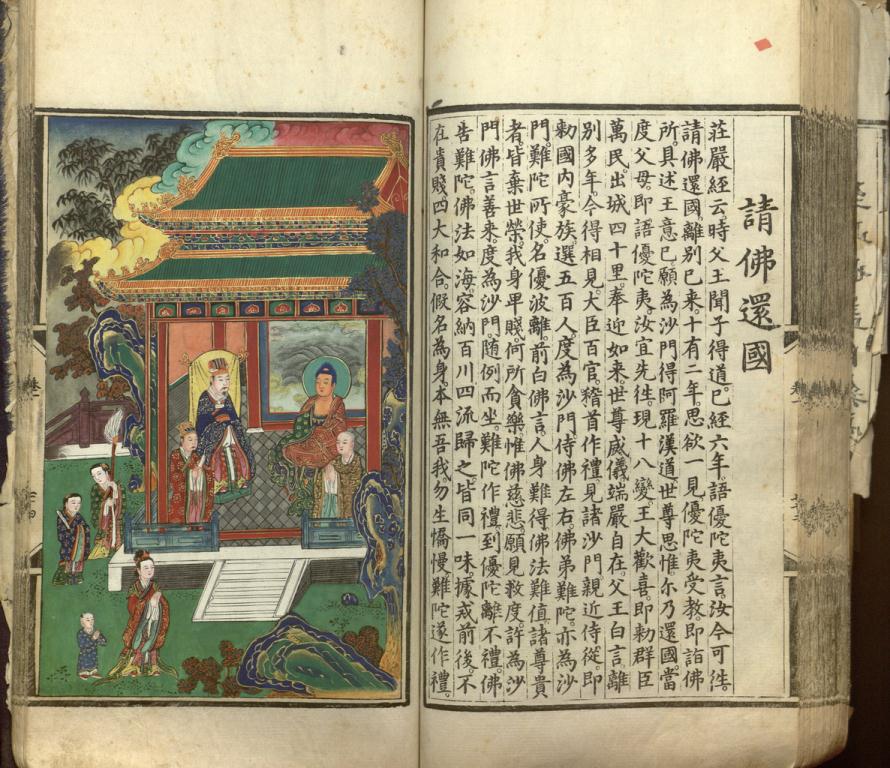 請佛還國
莊嚴經云。時父王聞子得道。已經六年。語優陀夷言。汝今可徃。
請佛還國。離別已来。十有二年。思欲一見。優陀夷受教。即詣佛
所。具述王意。已願為沙門。得阿羅漢道。世尊思惟。尓乃還國。當
度父母。即語優陀夷。汝宜先徃。現十八變。王大歡喜。即勑群臣
萬民。出城四十里。奉迎如来。世尊威儀端嚴自在。父王白言。離
別多年。今得相見。大臣百官。稽首作禮。見諸沙門親近侍從。即
勑國内豪族。選五百人。度為沙門。侍佛左右。佛弟難陀。亦為沙
門。難陀所使。名優波離。前白佛言。人身難得。佛法難值。諸尊貴
者。皆棄世榮。我身卑賤。何所貪樂。惟佛慈悲。願見救度。許為沙
門。佛言善来。度為沙門。随例而坐。難陀作禮。到優陀離不禮。佛
告難陀。佛法如海。容納百川。四流歸之。皆同一味。據戒前後。不
在貴賤。四大和合。假名為身。本無吾我。勿生憍慢。難陀遂作禮。